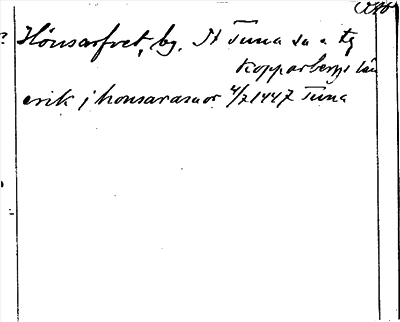 Hönsarfvet, by. St Tuna sn o tg
Kopparbergs län
erik j honsararuor 4/7 1447 Tuna